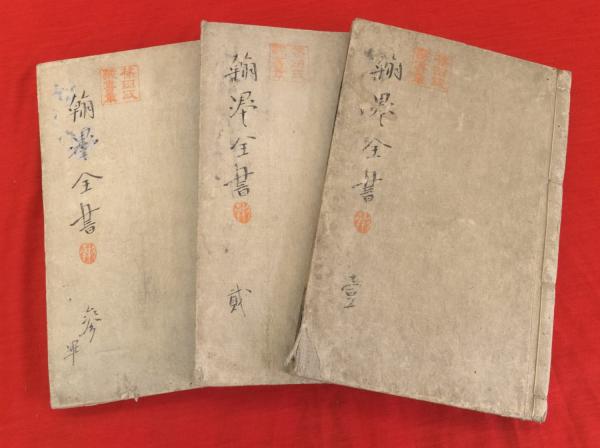 翰墨全書
壹
翰墨全書
貳
翰墨全書
參畢